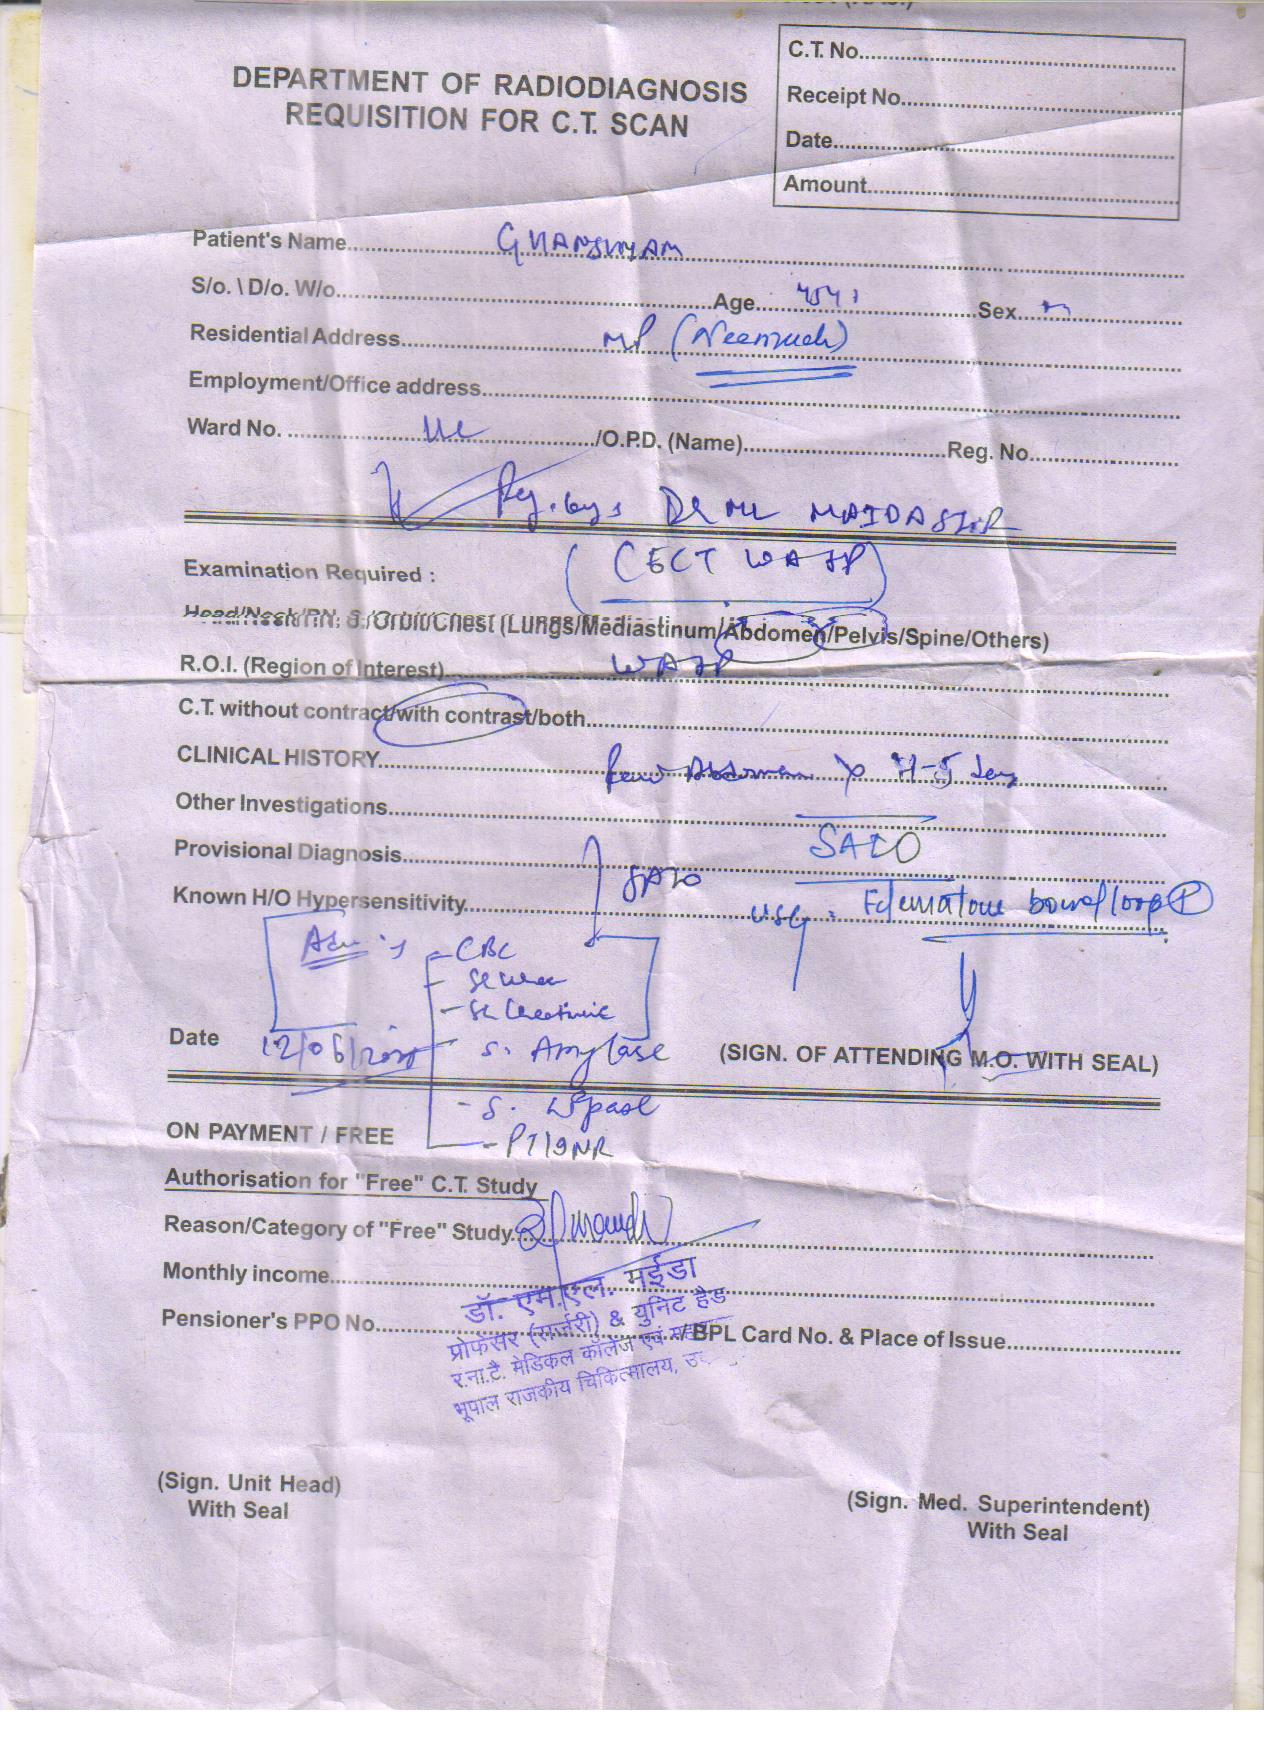 C.T. No.
Receipt No.
Date
Amount
DEPARTMENT OF RADIODIAGNOSIS
REQUISITION FOR C.T. SCAN
Patient's Name GHANSHYAM
S/o. \ D/o. W/o. Age Sex M
Residential Address MP (Neemuch)
Employment/Office address
Ward No. /O.P.D. (Name) Reg. No.
DR ML MAIDA SIR
Examination Required : (CECT WA
Head/Neck/PN. S./Orbit/Chest (Lungs/Mediastinum/Abdomen/Pelvis/Spine/Others)
R.O.I. (Region of Interest) WA
C.T. without contract/with contrast/both
CLINICAL HISTORY Pain Abdomen x 4-5 day
Other Investigations
Provisional Diagnosis SAIO
Known H/O Hypersensitivity SAIO
USG : Edematous bowel loop +
Adv :
- CBC
- Sr Urea
- Sr Creatinine
- S. Amylase
Date 12/06/ (SIGN. OF ATTENDING M.O. WITH SEAL)
- S. Lipase
- PT/INR
ON PAYMENT / FREE
Authorisation for "Free" C.T. Study
Reason/Category of "Free" Study
Monthly income
Pensioner's PPO No. /BPL Card No. & Place of Issue
डॉ. एम.एल. मईडा
प्रोफेसर (सर्जरी) & युनिट हैड
र.ना.टै. मेडिकल कॉलेज एवं
भूपाल राजकीय चिकित्सालय,
(Sign. Unit Head)
With Seal
(Sign. Med. Superintendent)
With Seal